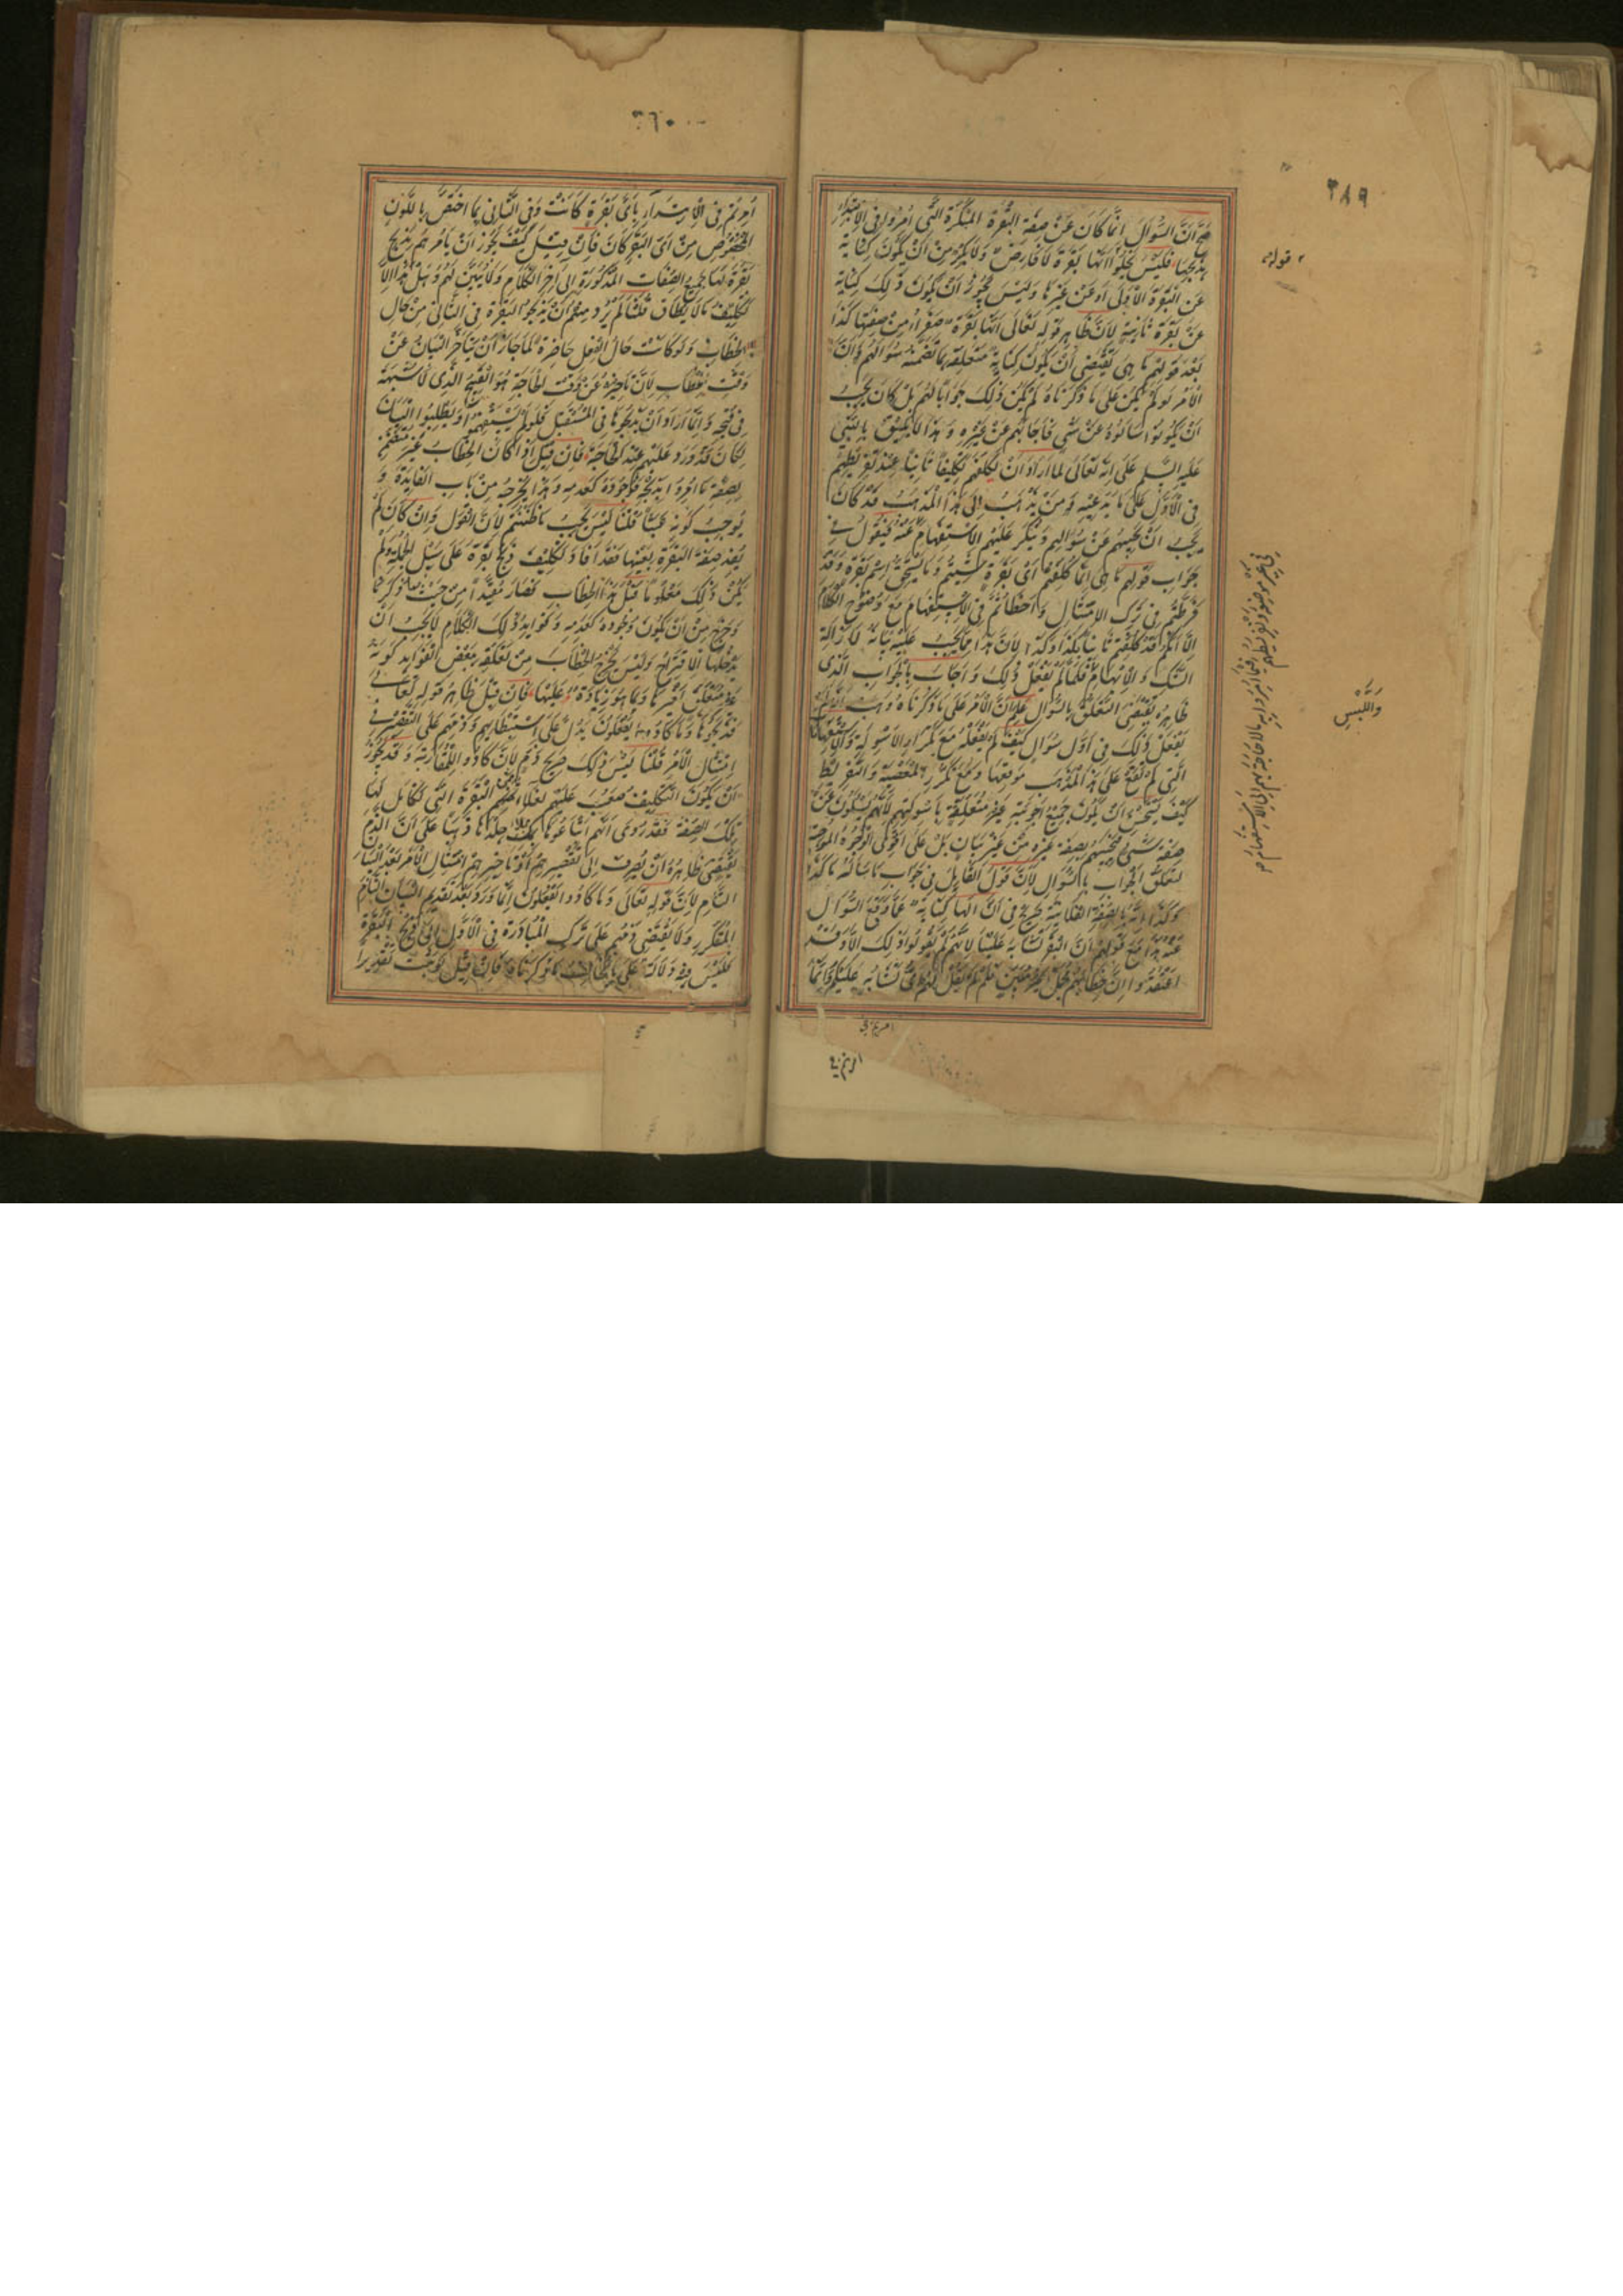 ٣٨٩
صح أن السؤال إنما كان عن صفة البقرة المنكرة التي أمروا في الابتداء
بذبحها فليس يخلوا أنها بقرة لا فارض ولا بكر من أن يكون كناية
عن البقرة الأولى أو عن غيرها وليس يجوز أن يكون ذلك كناية
عن بقرة ثانية لأن ظاهر قوله تعالى إنها بقرة من صفتها كذا
بعد قولهم ما هي يقتضي أن يكون كناية متعلقة بما تضمنه سؤالهم ولأن
الأمر لو لم يكن على ما ذكرناه لم يكن ذلك جوابا لهم بل كان يجب
أن يكونوا سألوه عن شي فأجابهم عن غيره وهذا لا يليق بالنبي
عليه السلم على أنه تعالى لما أراد أن يكلفهم تكليفا ثانيا عند تفريطهم
في الأول على ما يدعيه ومن يذهب إلى هذا المذهب قد كان
يجب أن يجيبهم عن سؤالهم وينكر عليهم الاستفهام عنه فيقول في
جواب قولهم ما هي إنما كلفتم أي بقرة شيتم وما يستحق اسم بقرة وقد
فرطتم في ترك الامتثال وأخطأتم في الاستفهام مع وضوح الكلام
إلا أنكم قد كلفتم ثانيا بكذا وكذا لأن هذا مما يجب عليه بيانه لازالة
الشك والابهام فلما لم يفعل ذلك وأجاب بالجواب الذي
ظاهره يقتضي التعلق بالسؤال علم أن الأمر على ما ذكرناه وهب أنه لم
يفعل ذلك في أول سؤال كيف لم يفعله مع تكرار الأسولة والاستفهامات
التي لم تقع على هذا المذهب موقعها ومع تكرر المعصية والتفريط
كيف يستحسن أن يكون جميع أجوبته غير متعلقة بأسولتهم لأنهم يسئلون عن
صفة شيء فيجيبهم بصفة غيره من غير بيان بل على أقوى الوجوه الموجبة
لتعلق الجواب بالسؤال لأن قول القايل في جواب ما سأله ما كذا
وكذا إنه بالصفة الفلانية صريح في أن الهاء كناية عما وقع السؤال
عنه هذا مع قولهم إن البقر تشابه علينا لأنهم لم يقولوا ذلك إلا وقد
اعتقدوا أن خطابهم مجمل غير مبين فلم لم يقل لهم وأي تشابه عليكم وإنما
امرتم في
امرتم في
قوله
واللبس
٣٦٠
أمرتم في الابتداء بأي بقرة كانت وفي الثاني بما اختص باللون
المخصوص من أي البقر كان فإن قيل كيف يجوز أن يأمرهم بذبح
بقرة لها جميع الصفات المذكورة إلى آخر الكلام ولا يبين لهم وهل هذا إلا
تكليف ما لا يطاق قلنا لم يرد منهم أن يذبحوا البقرة في الثاني من حال
الخطاب ولو كانت حال الفعل حاضرة لما جاز أن يتأخر البيان عن
وقت الخطاب لأن تأخيره عن وقت الحاجة هو القبيح الذي لا شبهة
في قبحه وإنما أراد أن يذبحوها في المستقبل فلو لم يستفهموا ويطلبوا البيان
لكان قد ورد عليهم عند الحاجة فإن قيل إذا كان الخطاب غير متضمن
لصفة ما أمروا بذبحه فوجوده كعدمه وهذا يخرجه من باب الفايدة و
يوجب كونه عبثا قلنا ليس يجب ما ظننتم لأن القول وإن كان لم
يفد صفة البقرة بعينها فقد أفاد تكليف ذبح بقرة على سبيل الجملة ولم
يكن ذلك معلوما قبل هذا الخطاب فصار مفيدا من حيث ما ذكرنا
وخرج من أن يكون وجوده كعدمه وفوايد ذلك الكلام لا يجب أن
يدخلها الاقتراح وليس يخرج الخطاب من تعلقه ببعض الفوايد كونه
غير متعلق بأخرى وبما هو زيادة عليها فإن قيل ظاهر قوله تعالى
فذبحوها وما كادوا يفعلون يدل على استبطائهم وذمهم على التقصير في
امتثال الأمر قلنا ليس ذلك صريح ذم لأن كادوا للمقاربة وقد يجوز
أن يكون التكليف صعب عليهم لغلاء ثمن البقرة التي تكامل لها
تلك الصفة فقد روي أنهم ابتاعوها بملء جلدها ذهبا على أن الذم
يقتضي ظاهره أن يصرف إلى تقصيرهم أو تأخيرهم امتثال الأمر بعد البيان
التام لأن قوله تعالى وما كادوا يفعلون إنما ورد بعد تقدم البيان التام
المتكرر ولا يقتضي ذمهم على ترك المبادرة في الأول إلى ذبح البقرة
فليس فيه دلالة على ما يخالف ما ذكرناه فإن قيل لو ثبت تقديرا